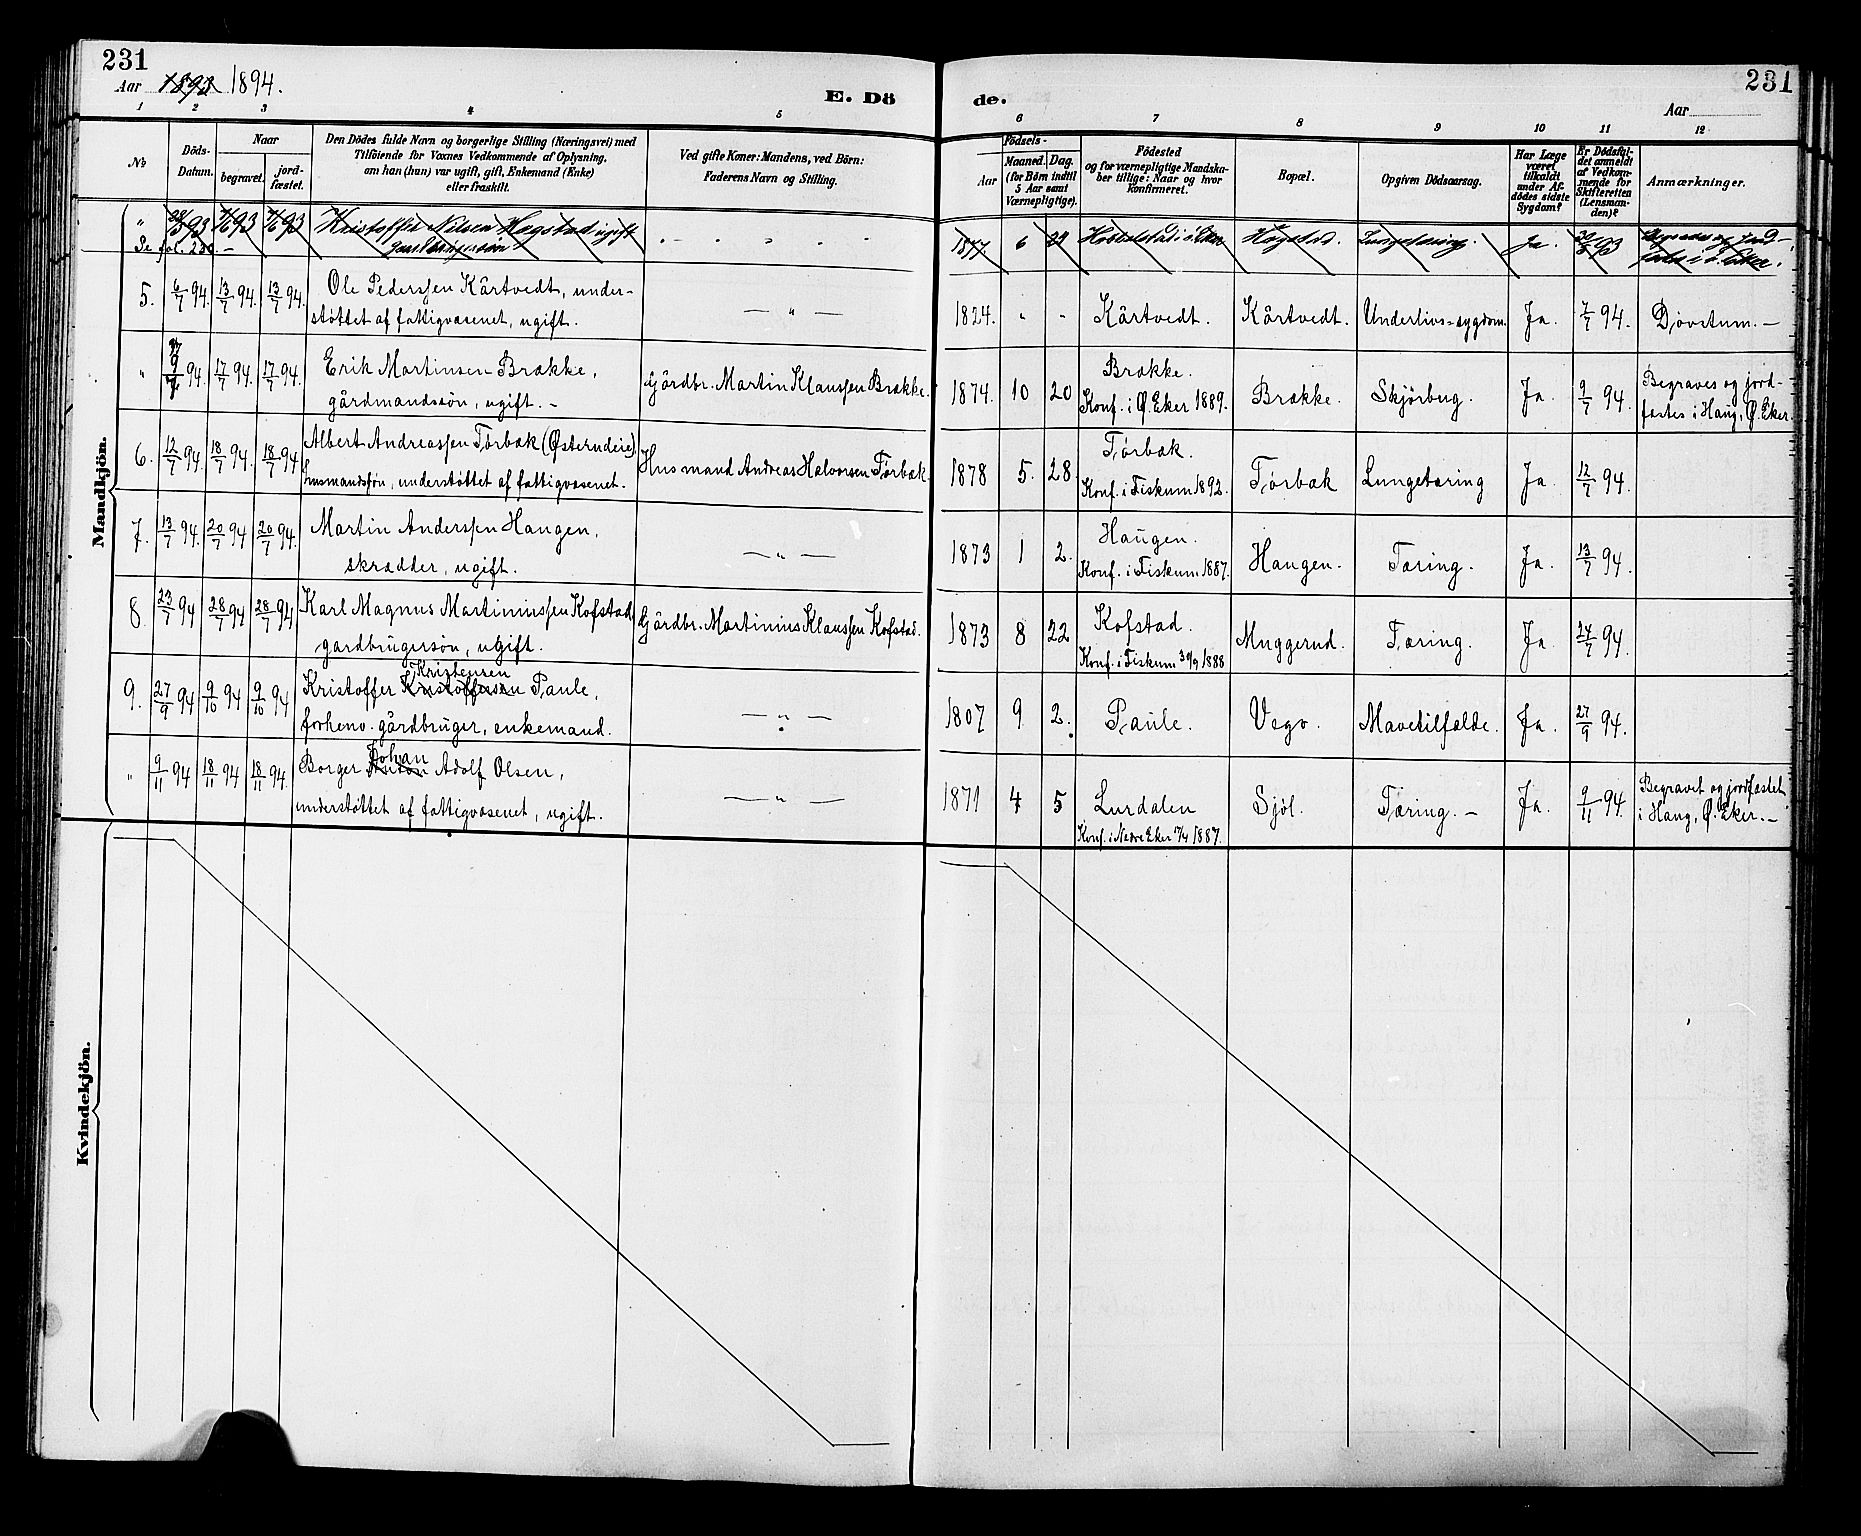 231
Aar 1893 1894.
E. Dö
de.
231
Aar
1 2 3 4 5 6 7 8 9 10 11 12
No
Döds-
Datum.
Naar
begravet.
jord-
fæstet.
Den Dödes fulde Navn og borgerlige Stilling (Næringsvei) med
Tilföiende for Voxnes Vedkommende af Oplysning,
om han (hun) var ugift, gift, Enkemand (Enke)
eller fraskilt.
Ved gifte Koner: Mandens, ved Börn:
Faderens Navn og Stilling.
Aar
Födsels-
Maaned. Dag.
(for Börn indtil
5 Aar samt
Værnepligtige).
Födested
og for værnepligtige Mandska-
ber tillige: Naar og hvor
konfirmeret.
Bopæl.
Opgiven Dödsaarsag.
Har Læge
været
tilkaldt
under Af-
dödes sidste
Sygdom?
Er Dödsfal-
det anmeldt
af Vedkom-
mende for
Skifteretten
(Lensman-
den)?
Anmærkninger.
Mandkjön.
" 28/5 93 4/6 93 4/6 93 Kristoffer Nilsen Hagstad ugift 1877 6 29 Hagstad. Lungetæring. Ja. 30/5 93 Begravet og jord-
Se fol. 230.- gaardbrugersøn
5. 6/7 94. 13/7 94. 13/7 94. Ole Pederssen Kårtvedt, under- — " — 1824. " - Kårtvedt. Kårtvedt. Underlivs-sygdom. Ja. 7/7 94. Døvstum.-
støttet af fattigvæsenet, ugift.
" 9/7 94. 17/7 94. 17/7 94. Erik Martinsen Brække, Gårdbr. Martin Klaussen Brække. 1874. 10 20 Brække. Brække. Skjørbug. Ja. 9/7 94. Begraves og jord-
gårdmandssøn, ugift.- Konf. i Ø. Eker 1889. fæstes i Haug, Ø. Eker.
6. 12/7 94. 18/7 94. 18/7 94 Albert Andreassen Tørbæk (Østerudeie) Husmand Andreas Halvorsen Tørbæk. 1878 5. 28. Tørbæk. Tørbæk Lungetæring Ja. 12/7 94.
husmandssøn, understøttet af fattigvæsenet. Konf. i Fiskum 1892.
7. 13/7 94. 20/7 94 20/7 94. Martin Anderssen Haugen, — " — 1873 1 2. Haugen. Haugen. Tæring. Ja. 13/7 94.
skrædder, ugift. Konf. i Fiskum 1887.
8. 23/7 94 28/7 94 28/7 94 Karl Magnus Martiniussen Kofstad Gårdbr. Martinius Klaussen Kofstad. 1873 8 22 Kofstad. Muggerud. Tæring. Ja 24/7 94.
gardbrugersøn, ugift. Konf. i Fiskum 30/9 1888
Kristensen
9. 27/9 94 9/10 94 9/10 94 Kristoffer Kristoffersen Paule, — " — 1807 9 2. Paule. Vego. Mavetilfælde. Ja. 27/9 94.
forhenv. gårdbruger, enkemand.
Johan
" 9/11 94 18/11 94 18/11 94. Borger Anton Adolf Olsen, — " — 1871 4 5 Lurdalen Sjöl. Tæring.- Ja. 9/11 94. Begravet og jordfæstet
understøttet af fattigvæsenet, ugift. Konf. i Nedre Eker 17/4 1887. i Haug, Ø. Eker.-
Kvindekjön.